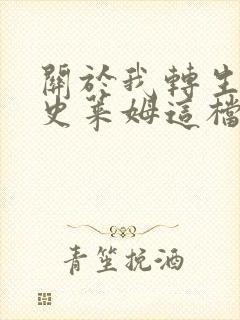 關於我轉生
史萊姆這檔
青笙挽酒